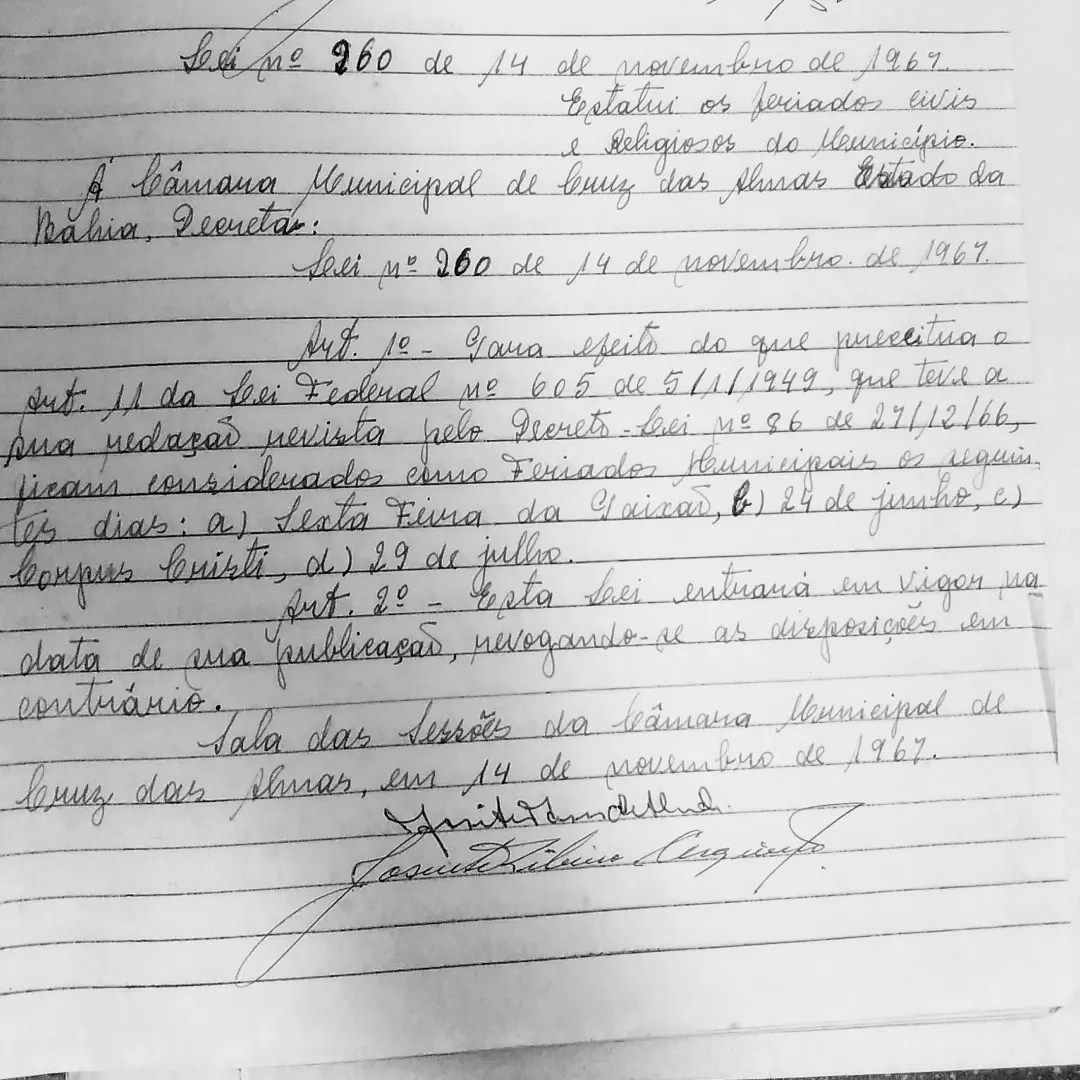 Lei nº 260 de 14 de novembro de 1967.
Estatui os feriados civis
e Religiosos do Município.
A Câmara Municipal de Cruz das Almas Estado da
Bahia, Decreta:
Lei nº 260 de 14 de novembro. de 1967.
Art. 1º - Para efeito do que preceitua o
Art. 11 da Lei Federal nº 605 de 5/1/1949, que teve a
sua redação revista pelo Decreto-Lei nº 86 de 27/12/66,
ficam considerados como Feriados Municipais os seguin
tes dias: a) Sexta Feira da Paixão, b) 24 de junho, c)
Corpus Cristi, d) 29 de julho.
Art. 2º - Esta Lei entrará em vigor na
data de sua publicação, revogando-se as disposições em
contrário.
Sala das Sessões da Câmara Municipal de
Cruz das Almas, em 14 de novembro de 1967.
Ribeiro